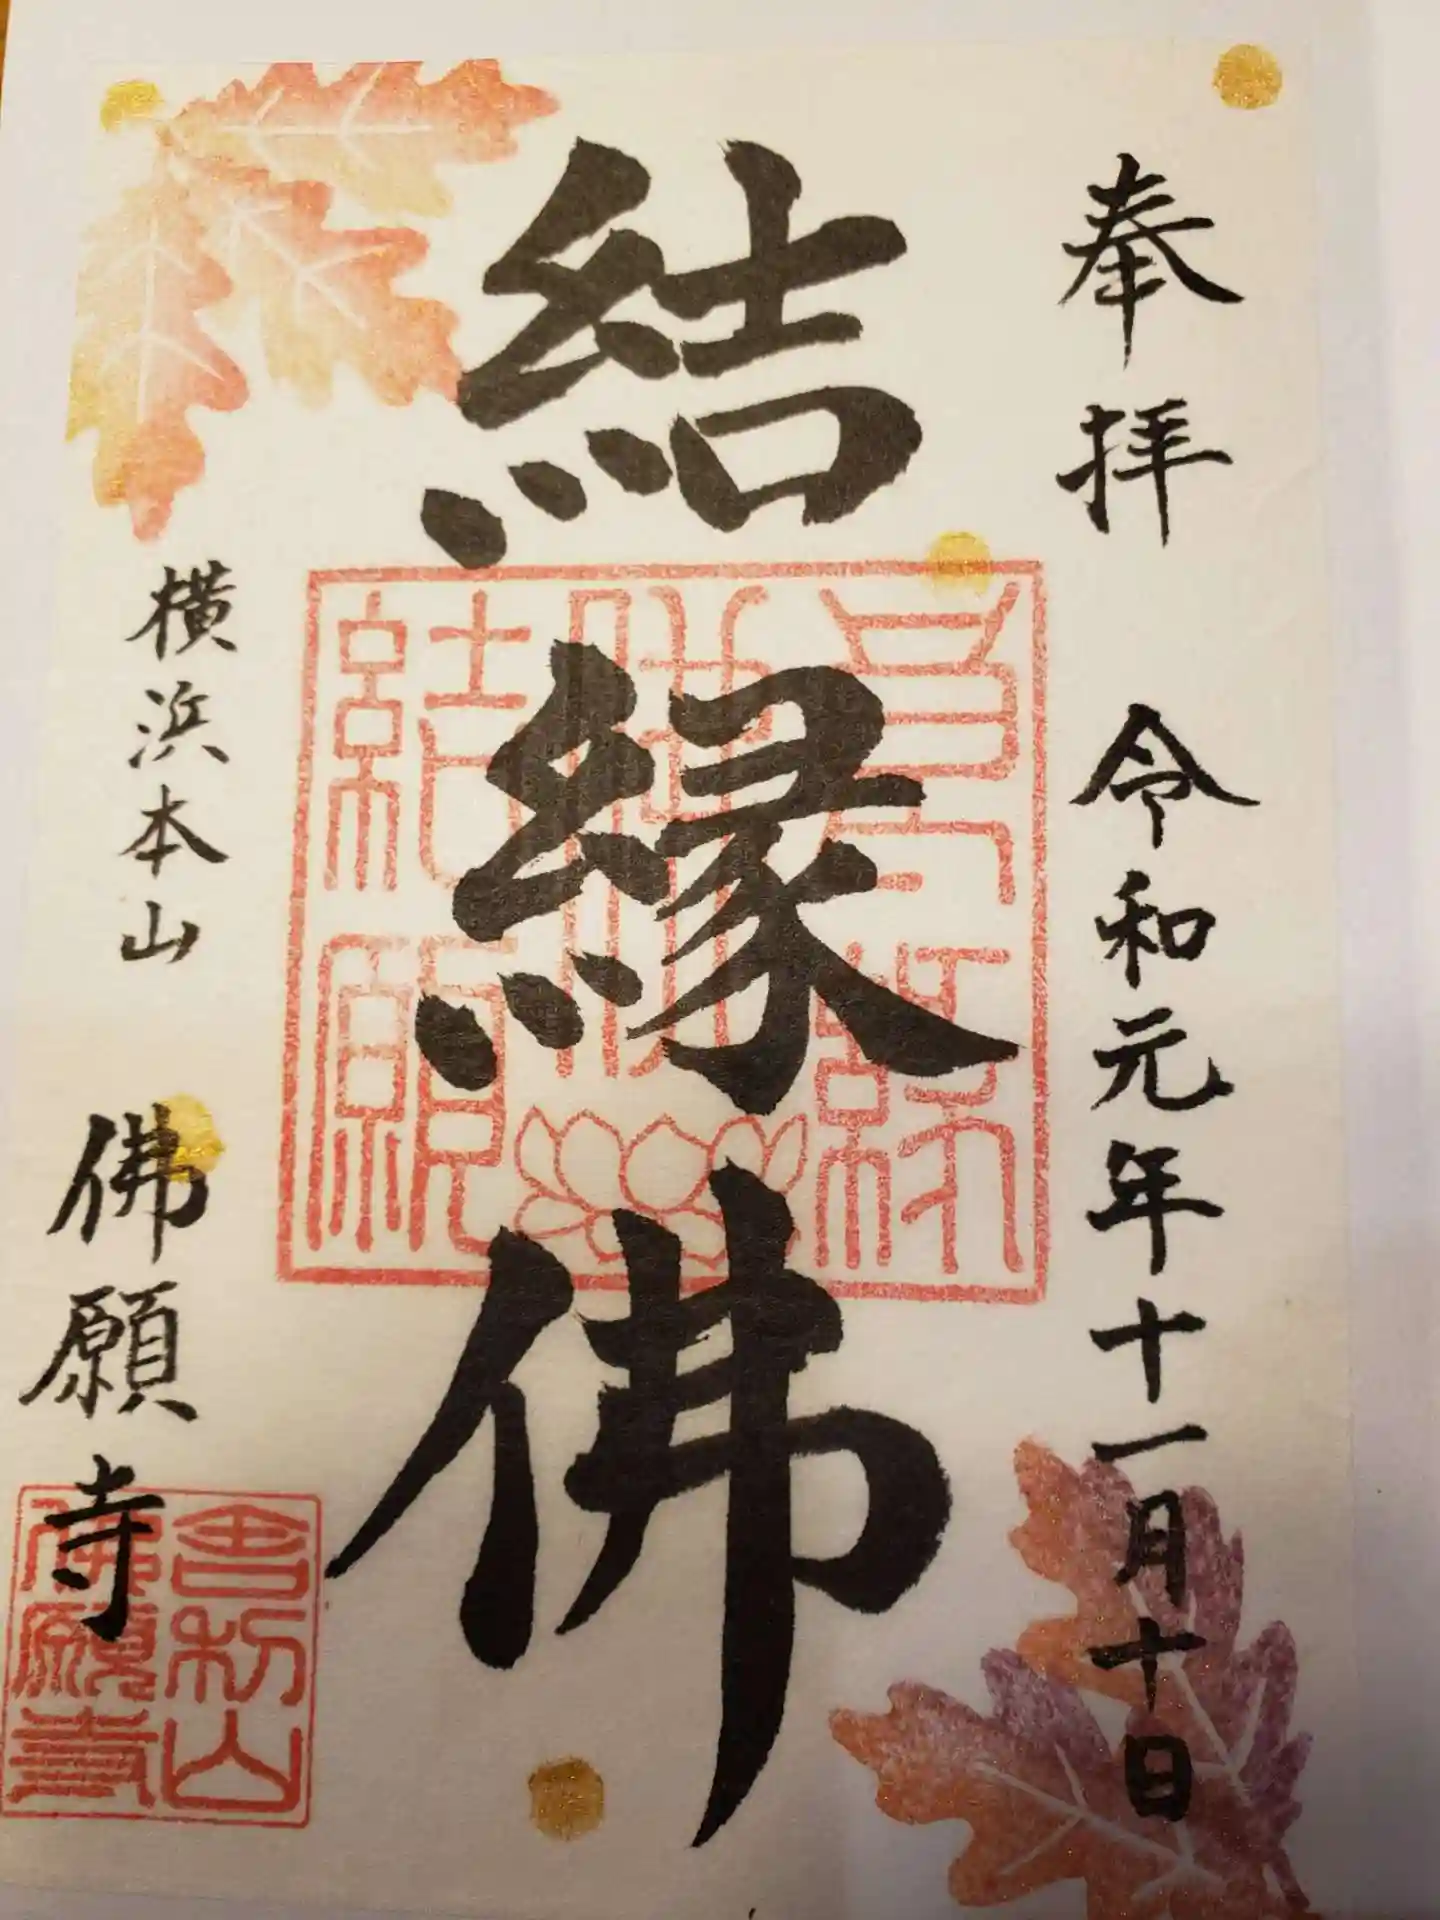 奉拝　令和元年十一月十日
結縁佛
横浜本山　佛願寺
舎利山
佛願寺